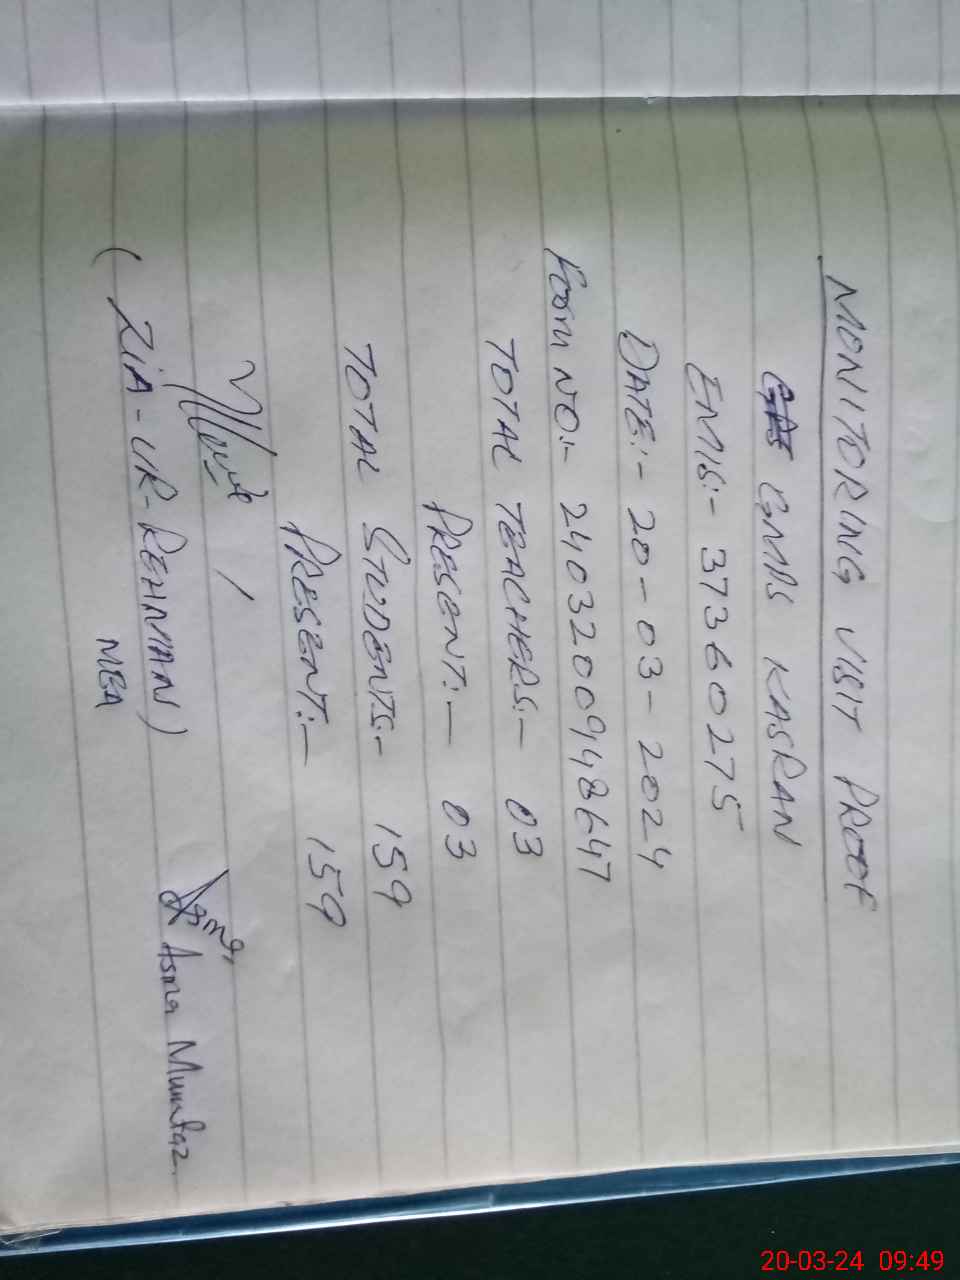 MONITORING VISIT PROOF
GMPS KASRAN
EMIS:- 37360275
DATE:- 20-03-2024
Form NO:- 24032009948647
TOTAL TEACHERS:- 03
PRESENT:- 03
TOTAL STUDENTS:- 159
PRESENT:- 159
(ZIA-UR-REHMAN)
MEA
Asma Mumtaz.
20-03-24 09:49